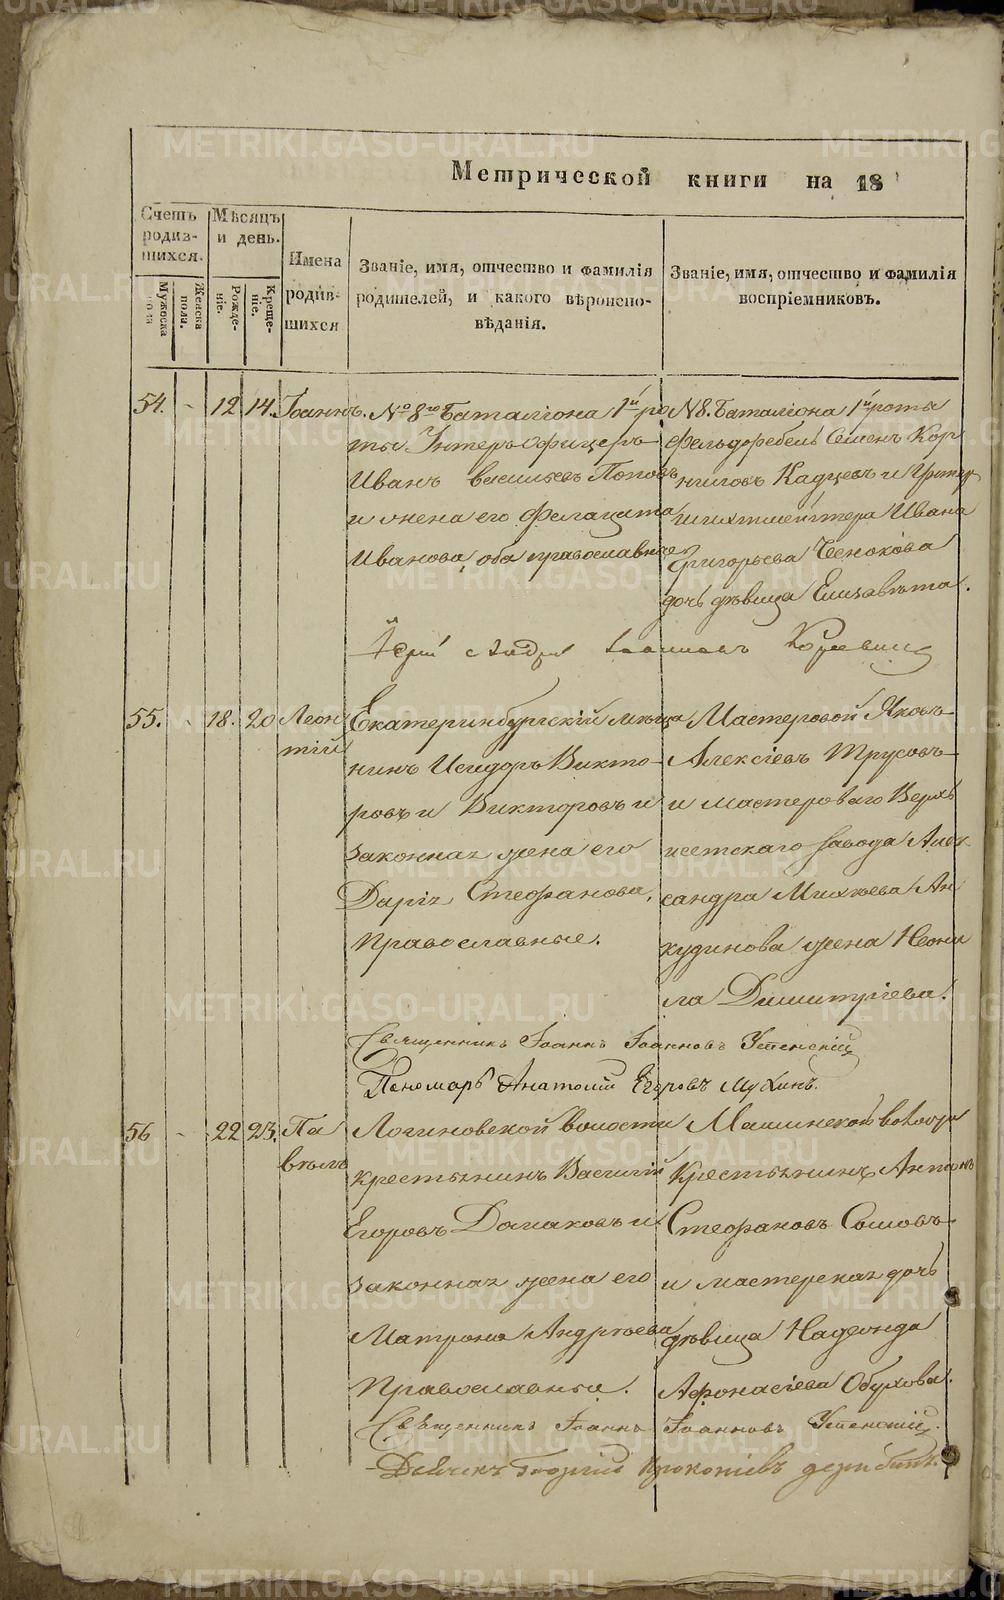 Метрической книги на 18
Счетъ родив-шихся.
Мѣсяцъ и день.
Имена родив-шихся
Званіе, имя, отчество и фамилія
родителей, и какого вѣроиспо-
вѣданія.
Званіе, имя, отчество и фамилія
воспріемниковъ.
Мужеска пола
Женска пола.
Рожде-ніе.
Креще-ніе.
54. - 12 14. Іоаннъ.
№ 8го Баталіона 1й ро
ты Унтеръ офицеръ
Иванъ Васильевъ Поповъ
и жена его Фелицата
Иванова, оба православные
№ 8. Баталіона 1й роты
Фельдфебель Семенъ Кор
ниловъ Кадцевъ и Унтер
шихтмейстера Ивана
Григорьева Ченокова
дочь дѣвица Елизавета.
Іерей Андрей
55. - 18. 20 Леон
тій
Екатеринбургскій мѣща
нинъ Исидоръ Викто-
ровъ и Викторовъ и
законная жена его
Дарія Стефанова,
Православные.
Мастеровой Яковъ
Алексіевъ Трусовъ
и мастероваго Верхъ
исетскаго завода Алек
сандра Михѣева Ан
кудинова жена Неони
ла Димитріева.
Священникъ Іоаннъ Іоанновъ Успенскій
Пономарь Анатолій Егоровъ Мухинъ.
56 - 22 23. Па
велъ
Логиновской волости
крестьянинъ Василій
Егоровъ Долаковъ и
законная жена его
Матрона Андреева
Православные.
Машинской волости
Крестьянинъ Антонъ
Стефановъ Сомовъ
и мастерская дочь
дѣвица Надежда
Афонасіева Обухова.
Священникъ Іоаннъ Іоанновъ Успенскій.
Дьячекъ Георгій Прокопіевъ
METRIKI.GASO-URAL.RU